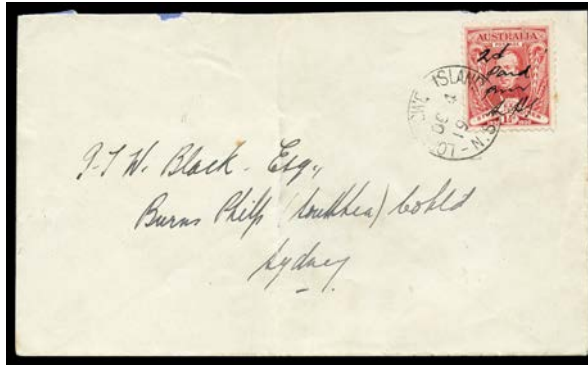 AUSTRALIA
2d
Paid
LORD HOWE ISLAND
N.S.W
J. T. W. Black - Esq.,
Burns Philp (South Sea) Co Ltd
Sydney